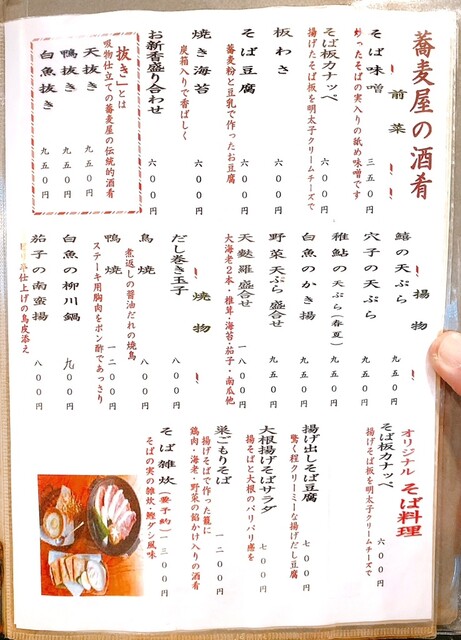 蕎麦屋の酒肴
前菜
そば味噌 三五〇円
炒ったそばの実入りの舐め味噌です
そば板カナッペ 六〇〇円
揚げたそば板を明太子クリームチーズで
板わさ 六〇〇円
そば豆腐 六〇〇円
蕎麦粉と豆乳で作ったお豆腐
焼き海苔 六〇〇円
炭箱入りで香ばしく
お新香盛り合わせ 六〇〇円
「抜き」とは
吸物仕立ての蕎麦屋の伝統的酒肴
天抜き 九五〇円
鴨抜き 九五〇円
白魚抜き 九五〇円
揚物
鱚の天ぷら 九五〇円
穴子の天ぷら 九五〇円
稚鮎の天ぷら(春夏) 九五〇円
白魚のかき揚 九五〇円
野菜天ぷら盛合せ 九五〇円
天麩羅盛合せ 一八〇〇円
大海老2本・椎茸・海苔・茄子・南瓜他
焼物
だし巻き玉子 八〇〇円
鳥焼 八〇〇円
煮返しの醤油だれの焼鳥
鴨焼 一二〇〇円
ステーキ用胸肉をポン酢であっさり
白魚の柳川鍋 九〇〇円
茄子の南蛮揚 八〇〇円
亭仕上げの鳥皮添え
オリジナル そば料理
そば板カナッペ 六〇〇円
揚げそば板を明太子クリームチーズで
揚げ出しそば豆腐 七〇〇円
驚く程クリーミーな揚げだし豆腐
大根揚げそばサラダ 七〇〇円
揚げそばと大根のパリパリ感を
巣ごもりそば 一二〇〇円
揚げそばで作った籠に
鶏肉・海老・野菜の餡かけ入りの酒肴
そば雑炊(要予約) 一三〇〇円
そばの実の雑炊・鰹ダシ風味